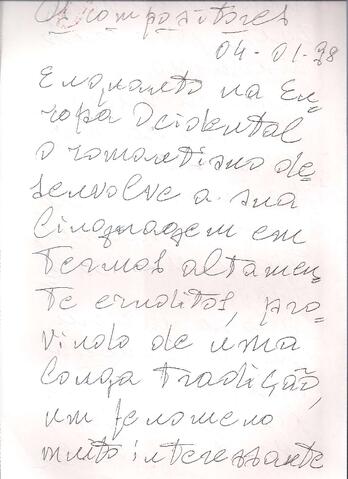 Os compositores
04-01-98
Enquanto na Eu=
ropa Ocidental
o romantismo de=
senvolve a sua
linguagem em
termos altamen=
te eruditos, pro=
vindo de uma
longa tradição,
um fenomeno
muito interessante